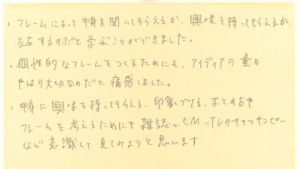 ・フレームによって中身を聞いてもらえるか、興味を持ってもらえるか、
左右するのだと学ぶことができました。
・個性的なフレームをつくるためにも、アイディアの量が
やはり大切なのだと痛感しました。
・中身に興味を持ってもらえる、印象づける、まとめ
フレームを考えるためにも雑誌やCM、TVのキャッチコピー
など意識して見てみようと思います。